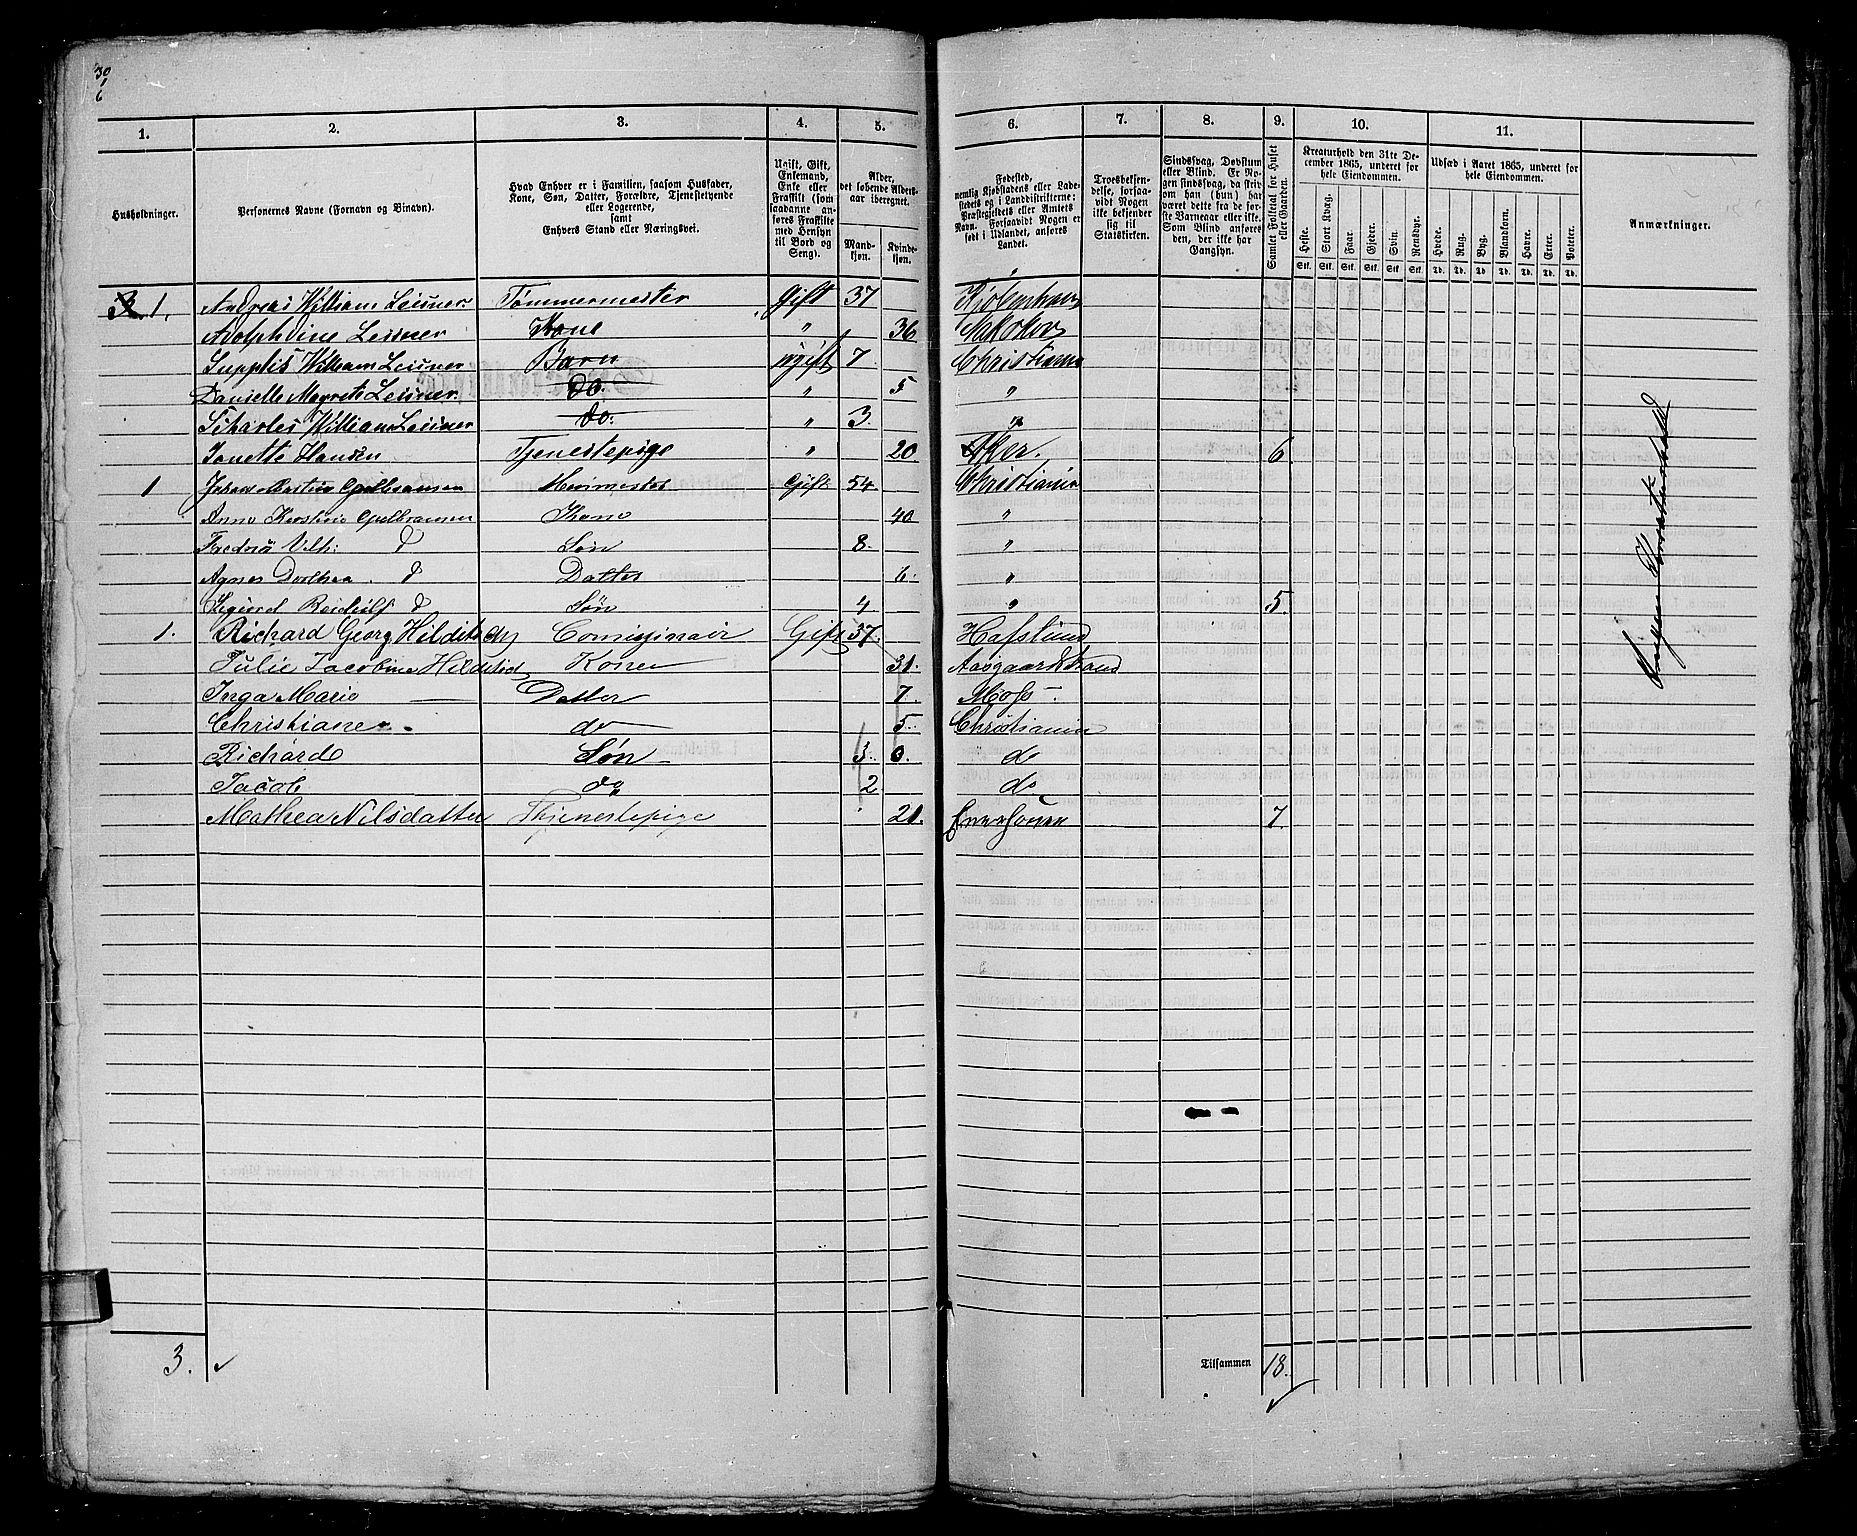 30
1
6
1. 2. 3. 4. 5. 6. 7. 8. 9. 10. 11.
Husholdninger.
Personernes Navne (Fornavn og Binavn).
Hvad Enhver er i Familien, saasom Husfader, Kone, Søn, Datter, Forældre, Tjenestetyende eller Logerende, samt Enhvers Stand eller Næringsvei.
Ugift, Gift, Enkemand, Enke eller Fraskilt (som saadanne anføres Fraskilte med Hensyn til Bord og Seng).
Alder, det løbende Aldersaar iberegnet.
Mandkjøn. Kvindekjøn.
Fødested, nemlig Kjøbstadens eller Ladestedets og i Landdistrikterne: Præstegjeldets eller Amtets Navn. Forsaavidt Nogen er født i Udlandet, anføres Landet.
Troesbekjendelse, forsaavidt Nogen ikke bekjender sig til Statskirken.
Sindssvag, Døvstum eller Blind. Er Nogen sindssvag, da skrives om han (hun) har været dette fra de første Barneaar eller ikke. Som Blind anføres den, der ikke har Gangsyn.
Samlet Folketal for Huset eller Gaarden.
Kreaturhold den 31te December 1865, underet for hele Eiendommen.
Heste. Stort Kvæg. Faar. Gjeder. Svin. Rensdyr.
Stk. Stk. Stk. Stk. Stk. Stk.
Udsæd i Aaret 1865, underet for hele Eiendommen.
Hvede. Rug. Byg. Blandkorn. Havre. Erter. Poteter.
Td. Td. Td. Td. Td. Td. Td.
Anmærkninger.
1. Andreas William Leisner Tømmermester Gift 37 Kjøbenhavn
Adolphine Leisner Kone " 36 Nakskov
William Leisner Barn ugift 7. Christiania
Danielle Magrete Leisner. do. " 5 "
Scharles William Leisner do. " 3. "
Janette Hansen Tjenestepige " 20 Aker. 6
1 Johan Gift 54. Christiania
Anne Kone 40 "
Vilh: d Søn 8. "
Agnes Dorthea. d Datter 6. "
Sigurd d Søn 4 " 5.
1. Richard Georg Hilditsch Gift 37. Hafslund
Julie Jacobine Hilditsch Konen 31. Aasgaardstrand
Inga Marie — Datter 7. Moss —
Christiane — do 5. Christiania
Richard Søn 3. 0. do
Jacob do 2 do
Mathea Nilsdatter Thjenestepige 21. 7.
Ingen
3.
Tilsammen 18.